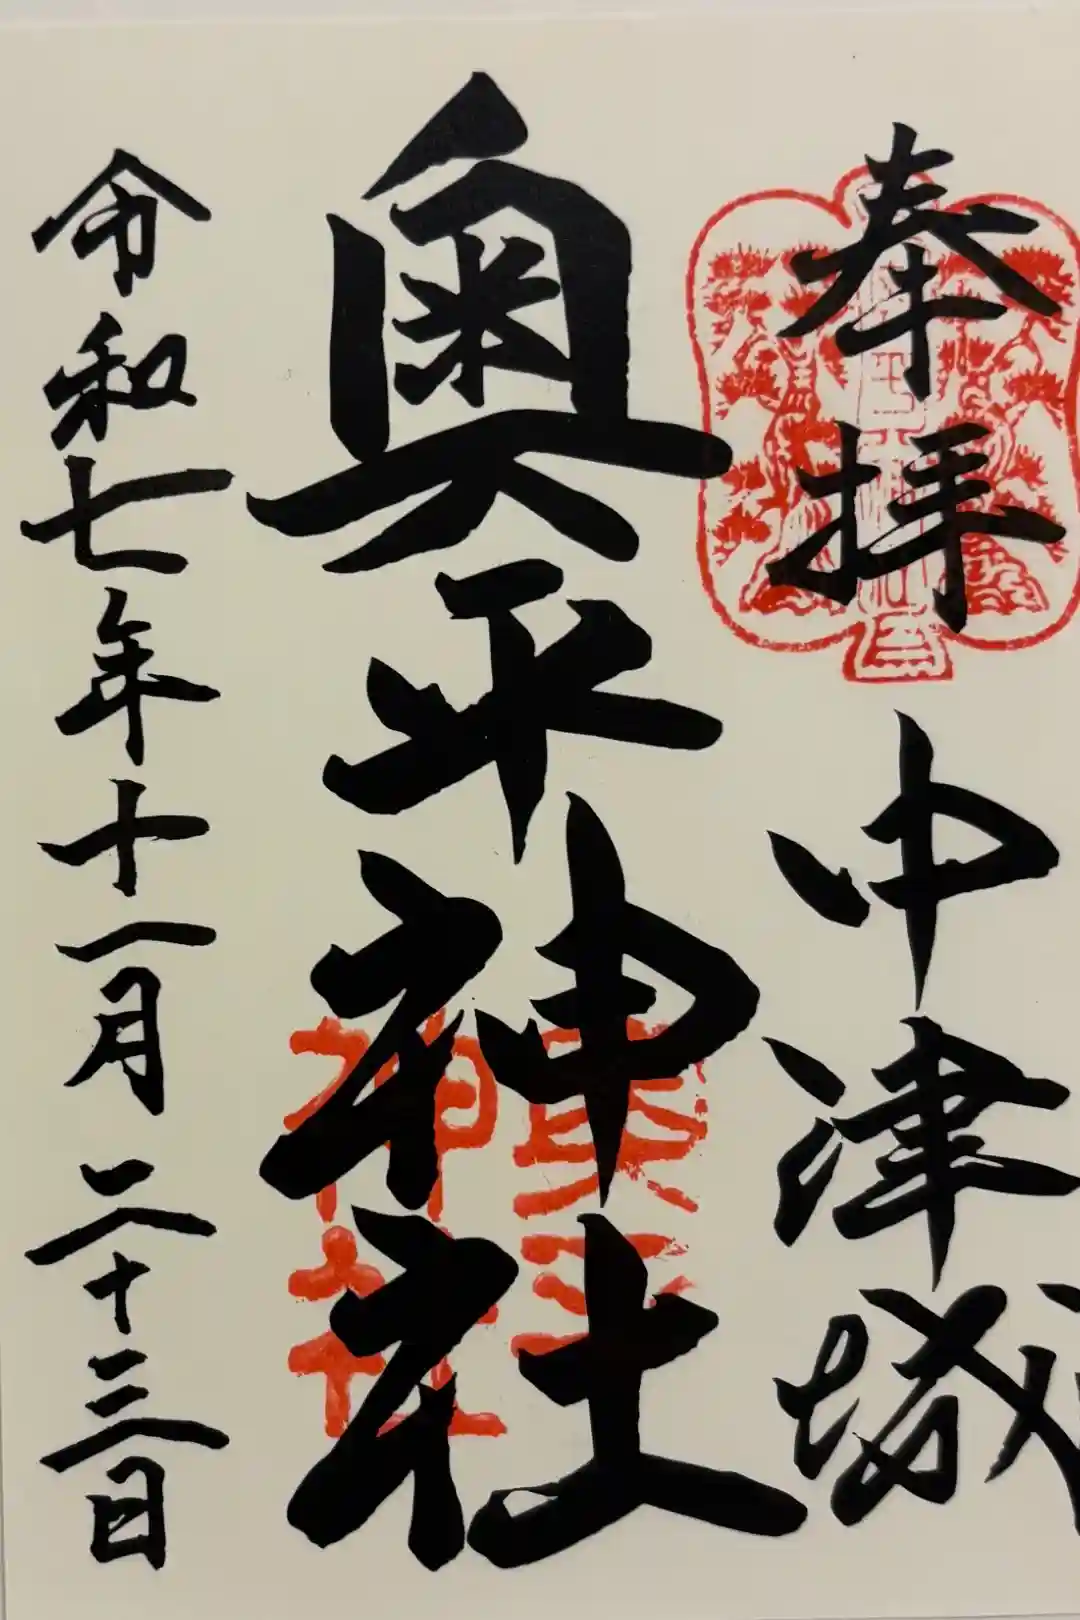 奉拝
中津城
奥平神社
令和七年十一月二十三日
奥平
神社